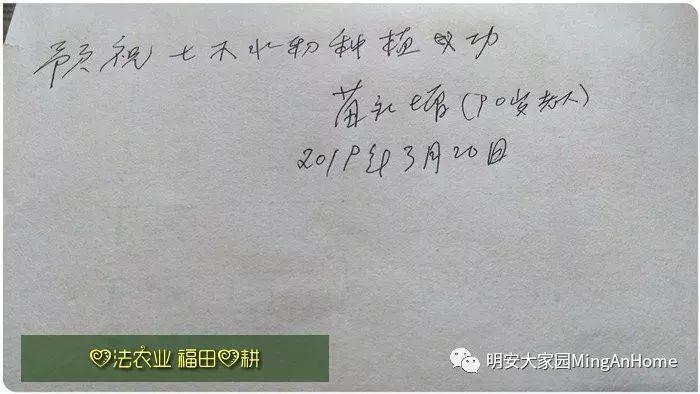 预祝七不物种植成功
苗(90岁老人)
2019年3月20日
♡法农业 福田♡耕
明安大家园MingAnHome